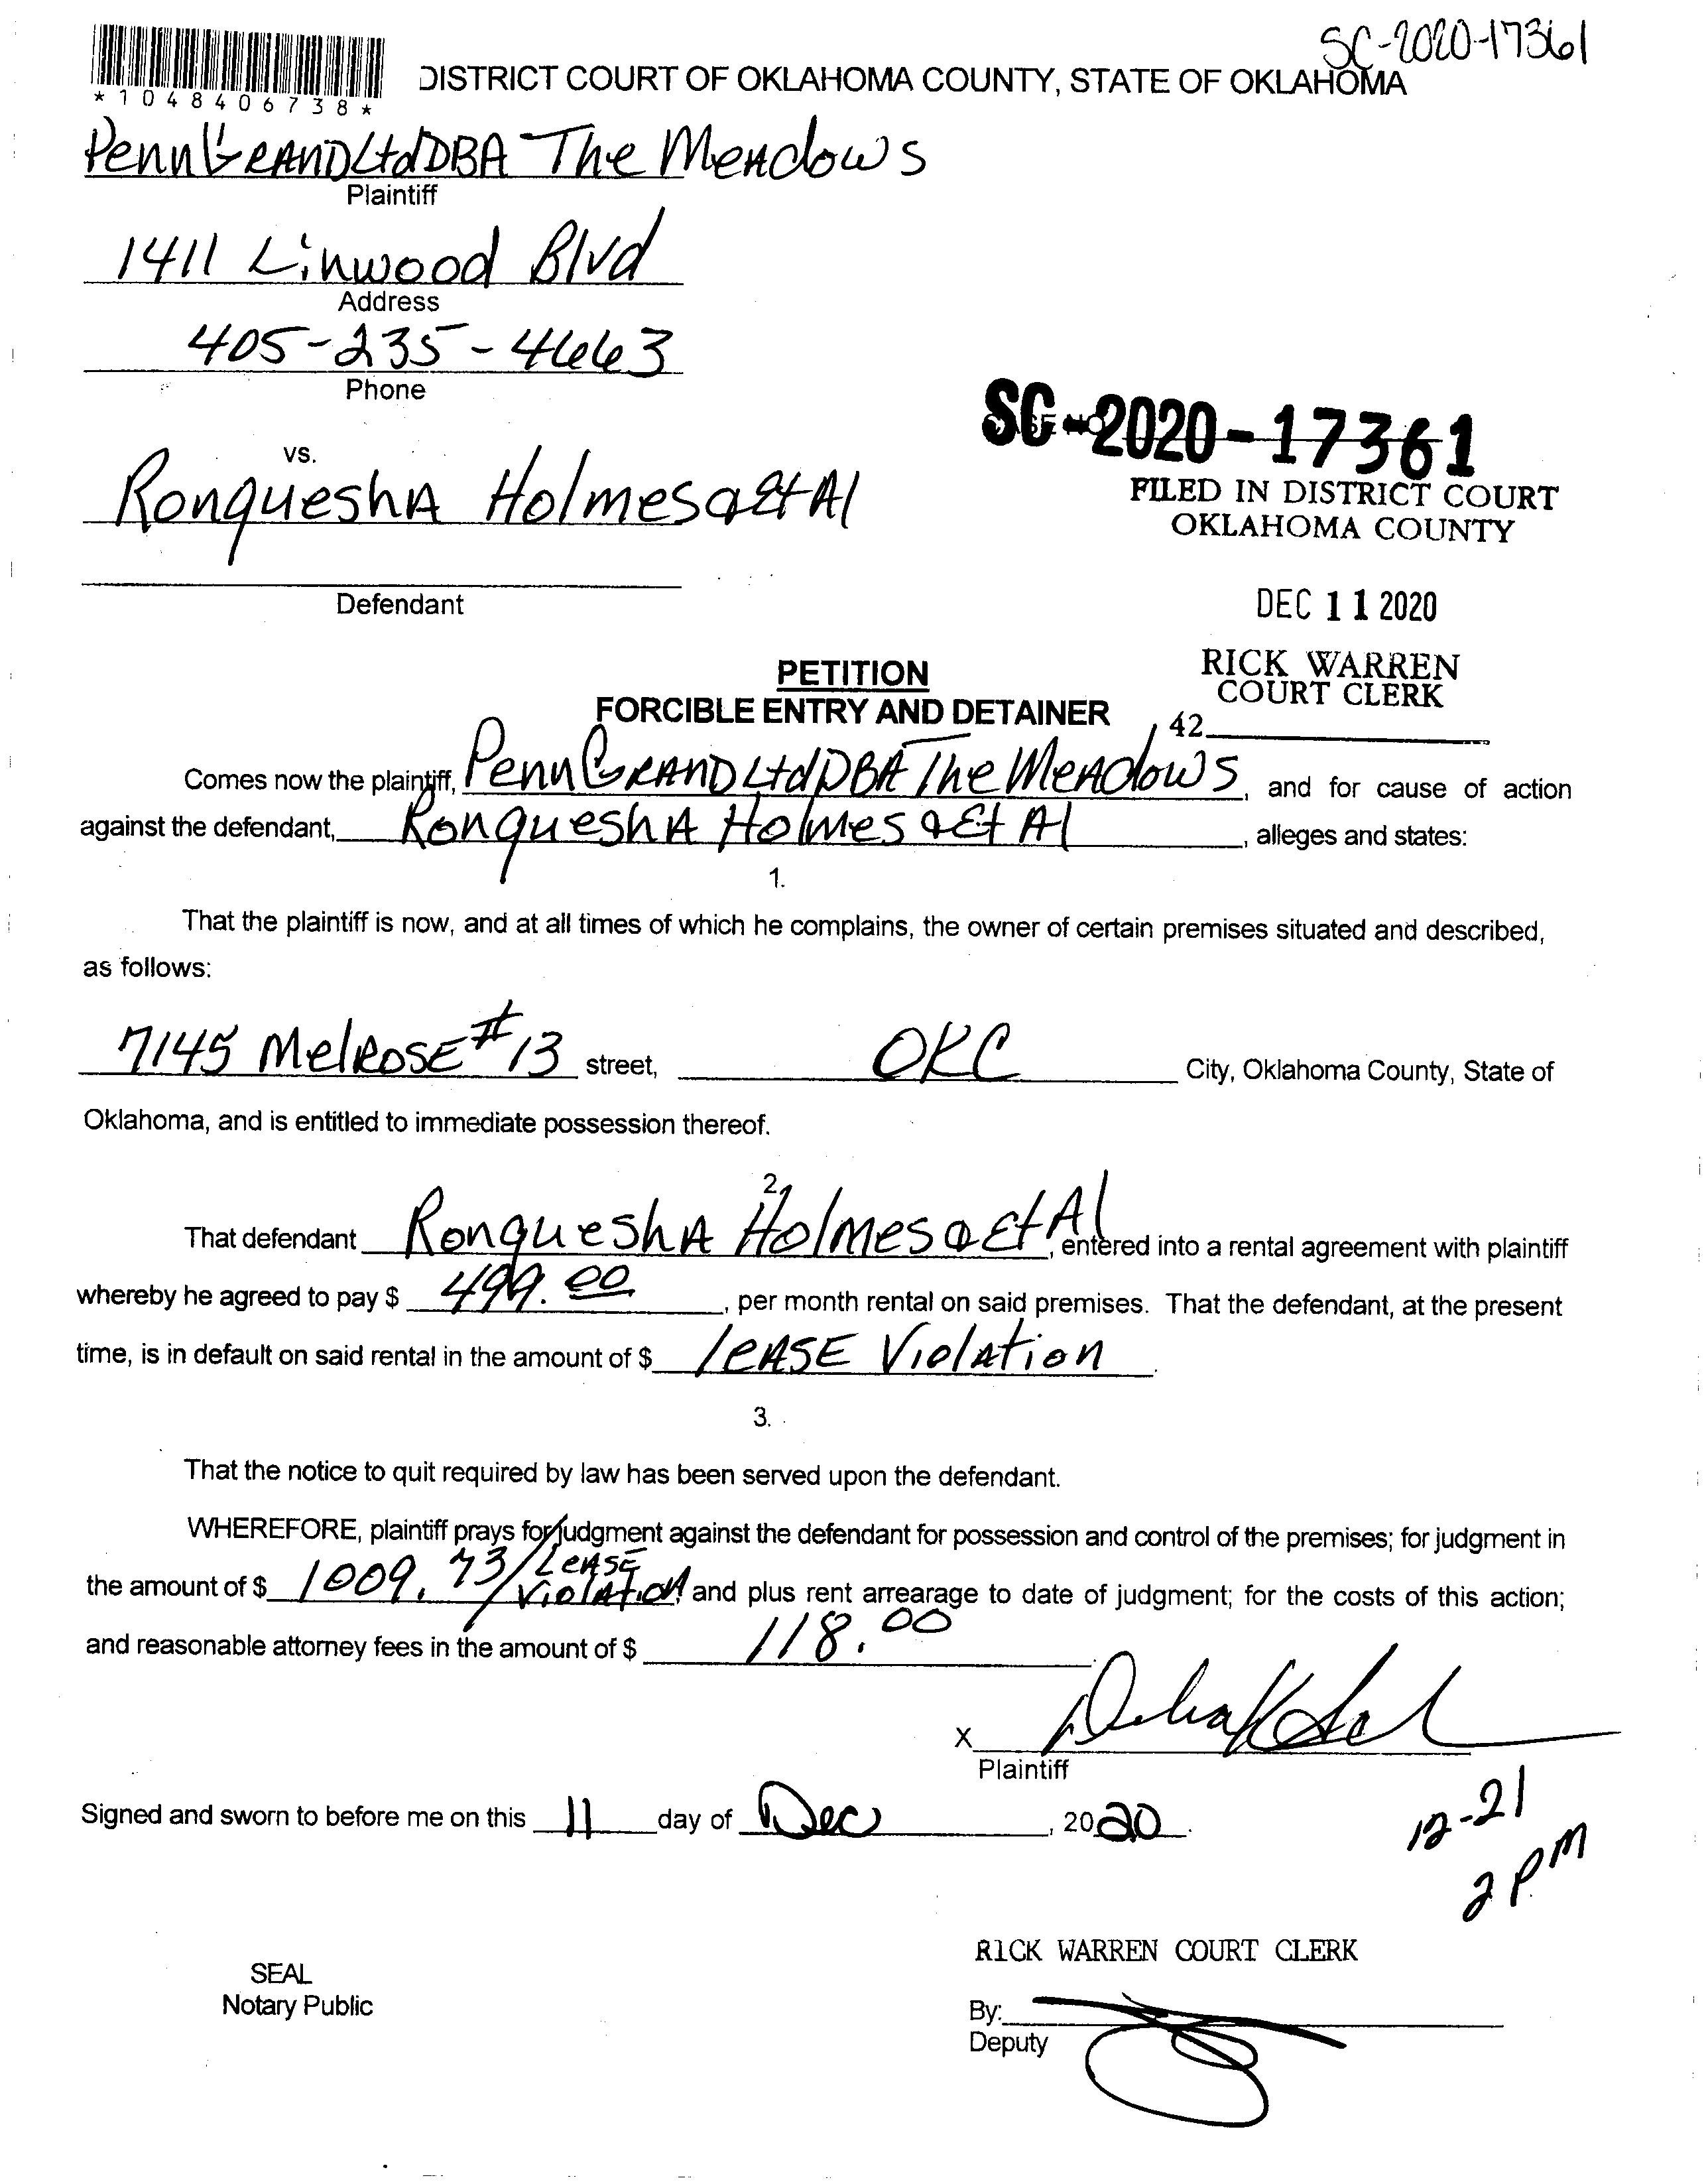 SC-2020-17361
*1048406738*
DISTRICT COURT OF OKLAHOMA COUNTY, STATE OF OKLAHOMA
Penn Grand Ltd DBA The Meadows
Plaintiff
1411 Linwood Blvd
Address
405-235-4663
Phone
SC-2020-17361
vs.
FILED IN DISTRICT COURT
OKLAHOMA COUNTY
Ronquesha Holmes & Et Al
DEC 11 2020
Defendant
RICK WARREN
COURT CLERK
42
PETITION
FORCIBLE ENTRY AND DETAINER
Comes now the plaintiff, Penn Grand Ltd DBA The Meadows, and for cause of action
against the defendant, Ronquesha Holmes & Et Al, alleges and states:
1.
That the plaintiff is now, and at all times of which he complains, the owner of certain premises situated and described,
as follows:
7145 Melrose #13 street, OKC City, Oklahoma County, State of
Oklahoma, and is entitled to immediate possession thereof.
2.
That defendant Ronquesha Holmes & Et Al, entered into a rental agreement with plaintiff
whereby he agreed to pay $ 499.00, per month rental on said premises. That the defendant, at the present
time, is in default on said rental in the amount of $ lease Violation.
3.
That the notice to quit required by law has been served upon the defendant.
WHEREFORE, plaintiff prays for judgment against the defendant for possession and control of the premises; for judgment in
the amount of $ 1009.73/Lease Violation and plus rent arrearage to date of judgment; for the costs of this action;
and reasonable attorney fees in the amount of $ 118.00
X
Plaintiff
Signed and sworn to before me on this 11 day of Dec, 2020.
12-21
2 PM
RICK WARREN COURT CLERK
SEAL
Notary Public
By:
Deputy